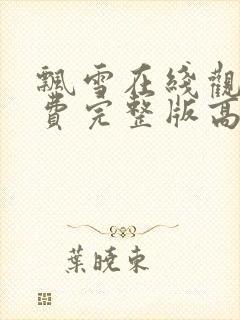 飄雪在綫觀
費完整版高
葉曉東